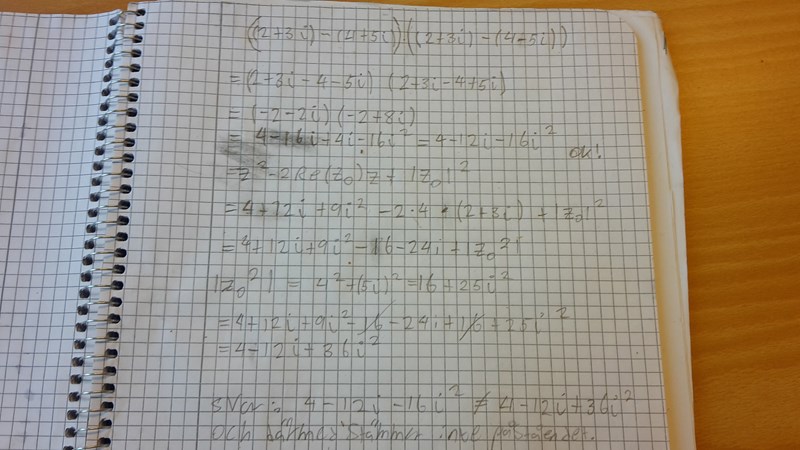 ((2+3i)-(4+5i))((2+3i)-(4-5i))
=(2+3i-4-5i) (2+3i-4+5i)
=(-2-2i)(-2+8i)
= 4-16i+4i-16i² = 4-12i-16i² OK!
=z²-2Re(z₀)z+|z₀|²
=4+12i+9i²-2·4·(2+3i)+|z₀|²
=4+12i+9i²-16-24i+|z₀²|
|z₀²| = 4²+(5i)²=16+25i²
=4+12i+9i²-16-24i+16+25i²
=4-12i+36i²
SVar: 4-12i-16i² ≠ 4-12i+36i²
Och därmed stämmer inte påståendet.